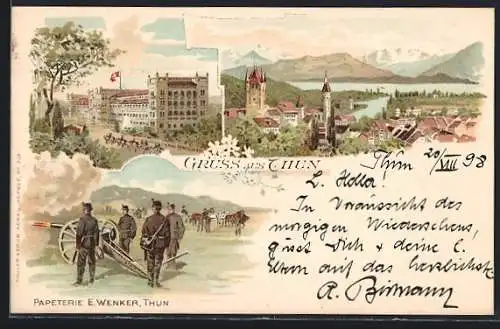 GRUSS AUS THUN
Thun 20/VIII 98
L. Hedla!
In Voraussicht des
morgigen Wiedersehens,
grüsst Dich & deine l.
Eltern auf das herzlichste
R. Birmann
PAPETERIE E. WENKER, THUN